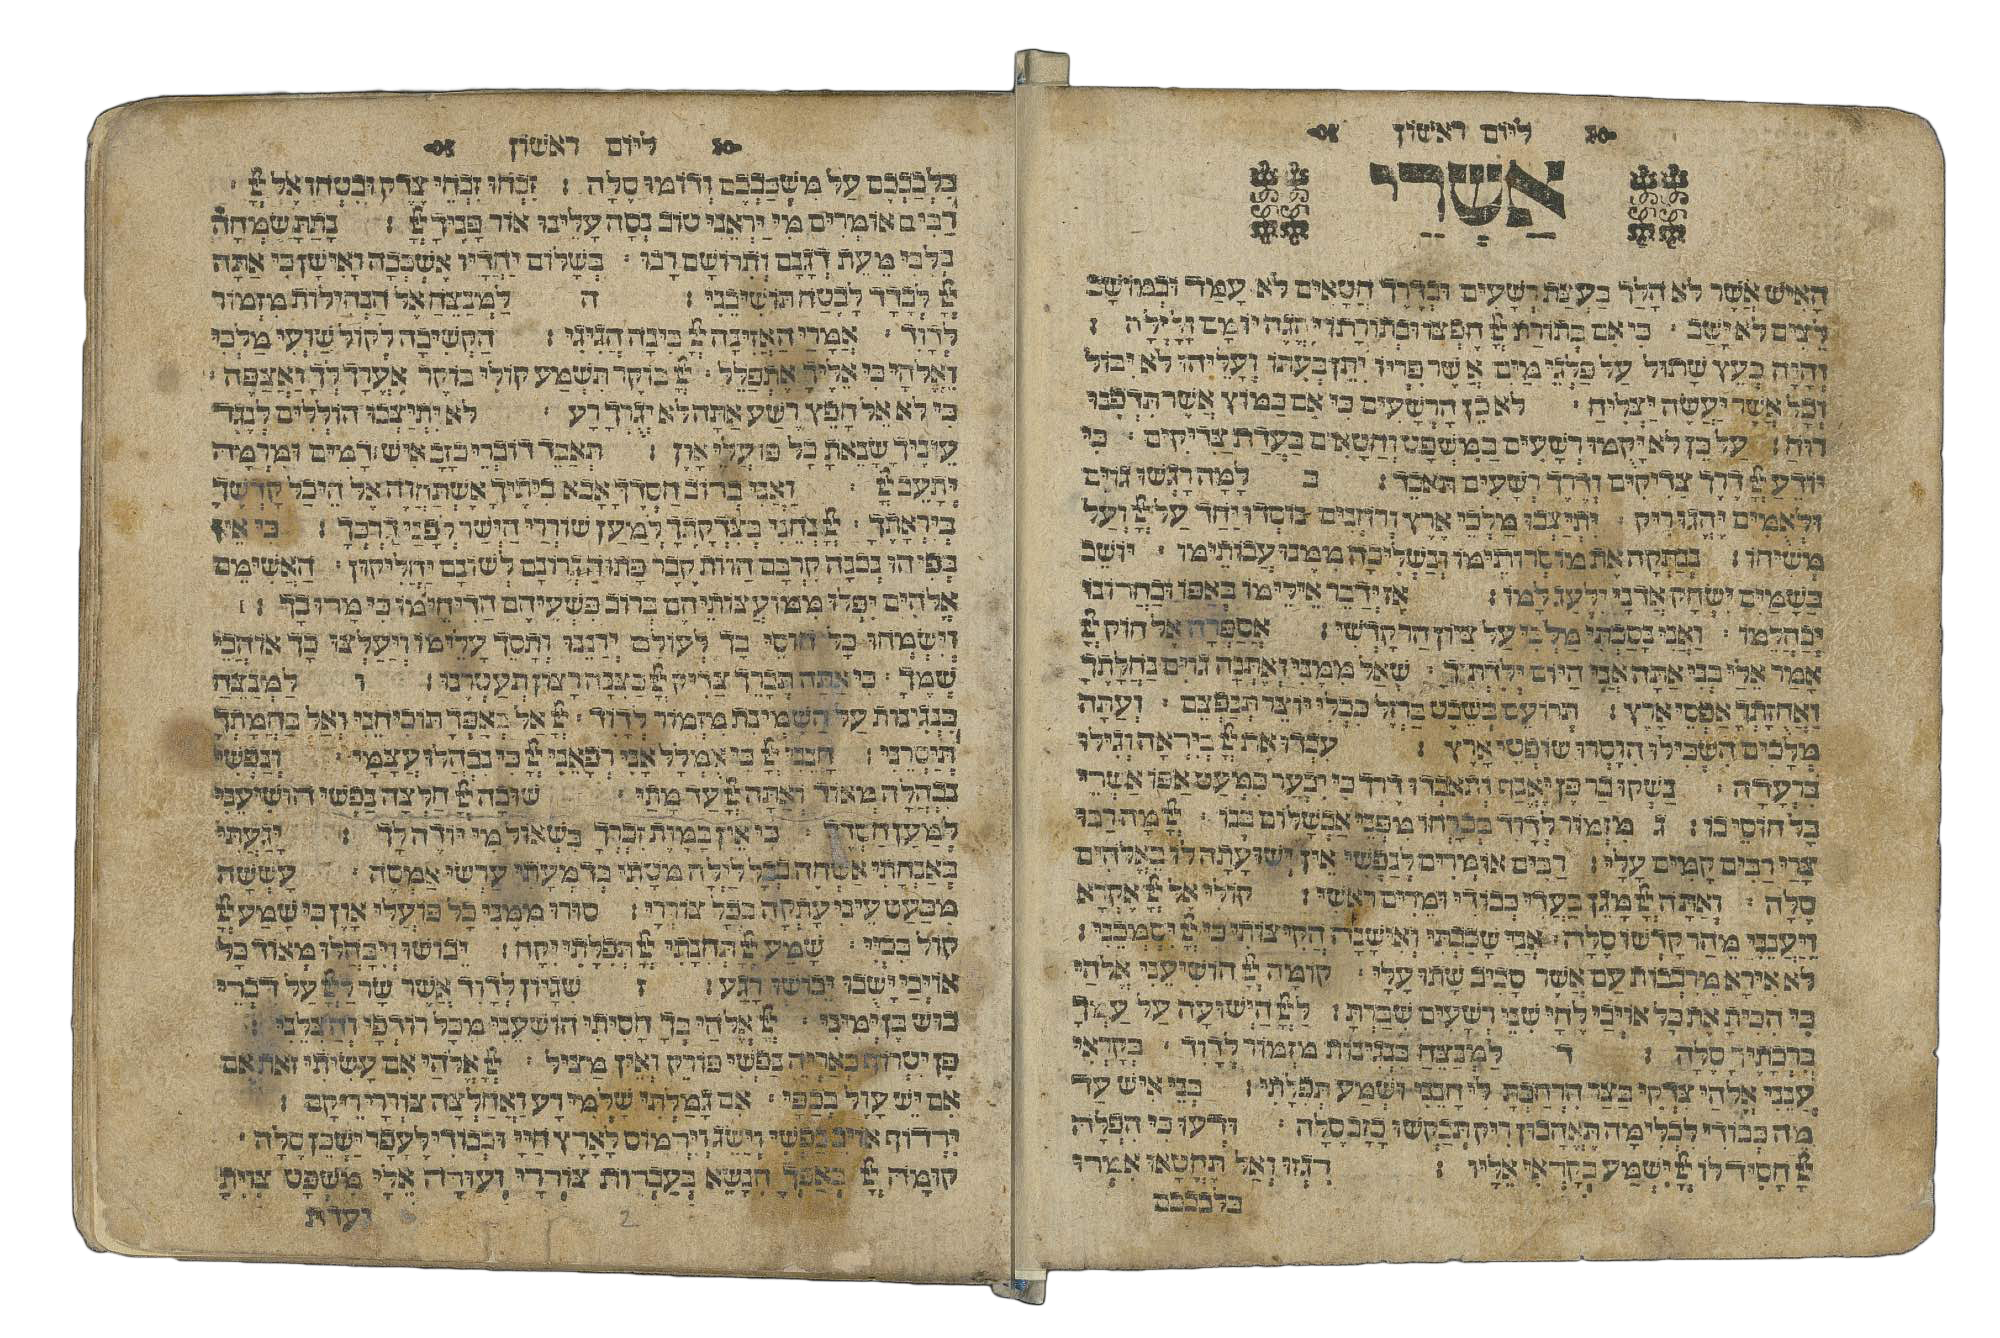 ליום ראשון
אשרי
האיש אשר לא הלך בעצת רשעים ובדרך חטאים לא עמד ובמושב
לצים לא ישב · כי אם בתורת יי חפצו ובתורתו יהגה יומם ולילה :
והיה כעץ שתול על פלגי מים אשר פריו יתן בעתו ועליהו לא יבול
וכל אשר יעשה יצליח · לא כן הרשעים כי אם כמוץ אשר תדפנו
רוח : על כן לא יקמו רשעים במשפט וחטאים בעדת צדיקים · כי
יודע יי דרך צדיקים ודרך רשעים תאבד : ב למה רגשו גוים
ולאמים יהגו ריק · יתיצבו מלכי ארץ ורוזנים נוסדו יחד על יי ועל
משיחו : ננתקה את מוסרותימו ונשליכה ממנו עבותימו · יושב
בשמים ישחק אדני ילעג למו : אז ידבר אלימו באפו ובחרונו
יבהלמו · ואני נסכתי מלכי על ציון הר קדשי : אספרה אל חוק יי
אמר אלי בני אתה אני היום ילדתיך · שאל ממני ואתנה גוים נחלתך
ואחזתך אפסי ארץ : תרועם בשבט ברזל ככלי יוצר תנפצם · ועתה
מלכים השכילו הוסרו שופטי ארץ : עבדו את יי ביראה וגילו
ברעדה · נשקו בר פן יאנף ותאבדו דרך כי יבער כמעט אפו אשרי
כל חוסי בו : ג מזמור לדוד בברחו מפני אבשלום בנו · יי מה רבו
צרי רבים קמים עלי : רבים אומרים לנפשי אין ישועתה לו באלהים
סלה · ואתה יי מגן בעדי כבודי ומרים ראשי : קולי אל יי אקרא
ויענני מהר קדשו סלה · אני שכבתי ואישנה הקיצותי כי יי יסמכני :
לא אירא מרבבות עם אשר סביב שתו עלי · קומה יי הושיעני אלהי
כי הכית את כל אויבי לחי שני רשעים שברת : ליי הישועה על עמך
ברכתיך סלה : ד למנצח בנגינות מזמור לדוד · בקראי
ענני אלהי צדקי בצר הרחבת לי חנני ושמע תפלתי : בני איש עד
מה כבודי לכלימה תאהבון ריק תבקשו כזב סלה · ודעו כי הפלה
יי חסיד לו יי ישמע בקראי אליו : רגזו ואל תחטאו אמרו
בלבבכם
ליום ראשון
בלבבכם על משכבכם ודומו סלה : זבחו זבחי צדק ובטחו אל יי ·
רבים אומרים מי יראני טוב נסה עלינו אור פניך יי : נתת שמחה
בלבי מעת דגנם ותירושם רבו · בשלום יחדיו אשכבה ואישן כי אתה
יי לבדד לבטח תושיבני : ה למנצח אל הנחילות מזמור
לדוד · אמרי האזינה יי בינה הגיגי : הקשיבה לקול שועי מלכי
ואלהי כי אליך אתפלל · יי בוקר תשמע קולי בוקר אערך לך ואצפה ·
כי לא אל חפץ רשע אתה לא יגורך רע · לא יתיצבו הוללים לנגד
עיניך שנאת כל פועלי און : תאבד דוברי כזב איש דמים ומרמה
יתעב יי · ואני ברוב חסדך אבא ביתיך אשתחוה אל היכל קדשך
ביראתך · יי נחני בצדקתך למען שוררי הישר לפני דרכך : כי אין
בפיהו נכנה קרבם הוות קבר פתוח גרונם לשונם יחליקון · האשימם
אלהים יפלו ממועצותיהם ברוב פשעיהם הדיחימו כי מרו בך :
וישמחו כל חוסי בך לעולם ירננו ותסך עלימו ויעלצו בך אוהבי
שמך · כי אתה תברך צדיק יי כצנה רצון תעטרנו : ו למנצח
בנגינות על השמינית מזמור לדוד · יי אל באפך תוכיחני ואל בחמתך
תיסרני : חנני יי כי אמלל אני רפאני יי כי נבהלו עצמי · ונפשי
נבהלה מאוד ואתה יי עד מתי · שובה יי חלצה נפשי הושיעני
למען חסדך · כי אין במות זכריך בשאול מי יודה לך : יגעתי
באנחתי אשחה בכל לילה מטתי בדמעתי ערשי אמסה · עששה
מכעס עיני עתקה בכל צוררי : סורו ממני כל פועלי און כי שמע יי
קול בכיי · שמע יי תחנתי יי תפלתי יקח : יבושו ויבהלו מאוד כל
אויבי ישובו יבושו רגע : ז שגיון לדוד אשר שר ליי על דברי
כוש בן ימיני · יי אלהי בך חסיתי הושעני מכל רודפי והצלני :
פן יטרוף כאריה נפשי פורק ואין מציל · יי אלהי אם עשיתי זאת אם
אם יש עול בכפי · אם גמלתי שלמי רע ואחלצה צוררי ריקם :
ירדוף אויב נפשי וישג וירמוס לארץ חיי וכבודי לעפר ישכן סלה ·
קומה יי באפך הנשא בעברות צוררי ועורה אלי משפט צוית
ועדת
2